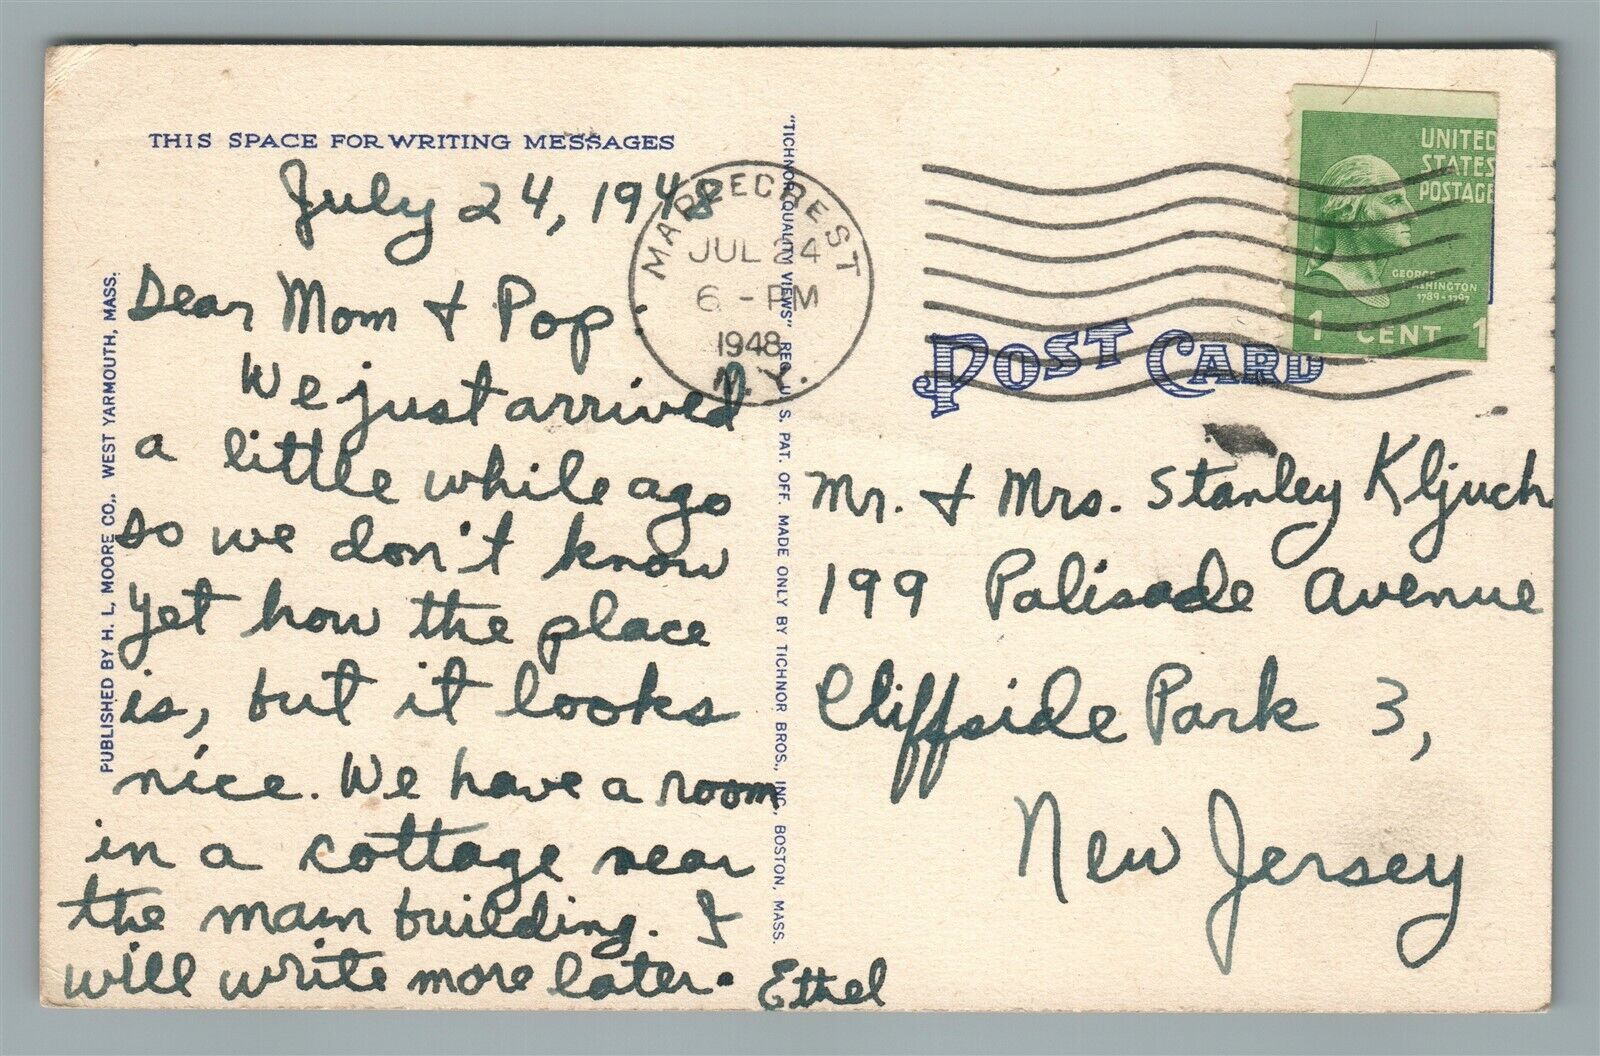 THIS SPACE FOR WRITING MESSAGES
July 24, 1948
Dear Mom & Pop:
We just arrived
a little while ago
so we don't know
yet how the place
is, but it looks
nice. We have a room
in a cottage near
the main building. I
will write more later.
Ethel
PUBLISHED BY H. L. MOORE CO., WEST YARMOUTH, MASS.
"TICHNOR QUALITY VIEWS" REG. U. S. PAT. OFF. MADE ONLY BY TICHNOR BROS., INC., BOSTON, MASS.
MAPLECREST
JUL 24
6 - PM
1948
N.Y.
UNITED
STATES
POSTAGE
GEORGE
WASHINGTON
1789-1797
1 CENT 1
POST CARD
Mr. & Mrs. Stanley Kljuch
199 Palisade Avenue
Cliffside Park 3,
New Jersey